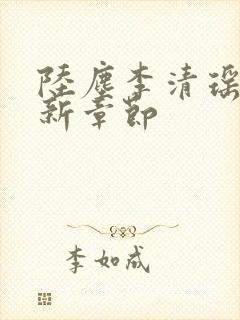 陸塵李清瑶
新章節
李如成